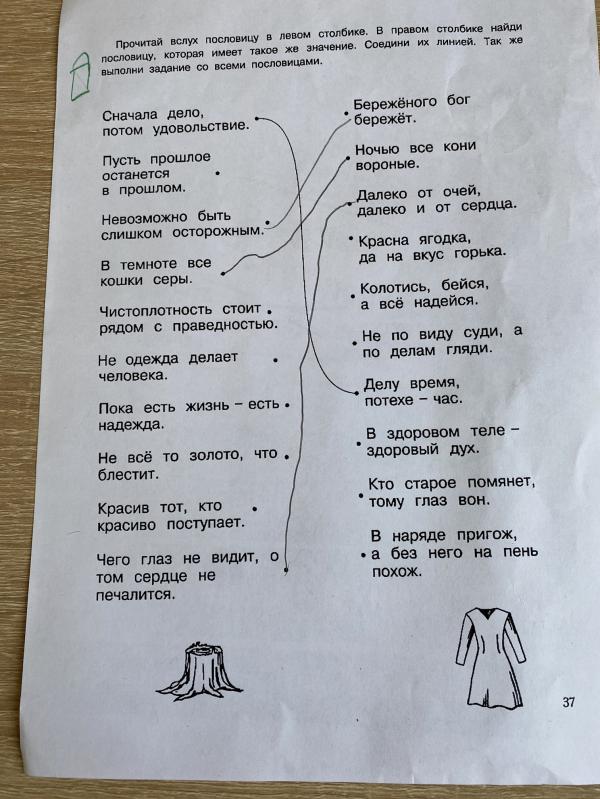 Прочитай вслух пословицу в левом столбике. В правом столбике найди
пословицу, которая имеет такое же значение. Соедини их линией. Так же
выполни задание со всеми пословицами.
Сначала дело,
потом удовольствие.
Пусть прошлое
останется
в прошлом.
Невозможно быть
слишком осторожным.
В темноте все
кошки серы.
Чистоплотность стоит
рядом с праведностью.
Не одежда делает
человека.
Пока есть жизнь – есть
надежда.
Не всё то золото, что
блестит.
Красив тот, кто
красиво поступает.
Чего глаз не видит, о
том сердце не
печалится.
Бережёного бог
бережёт.
Ночью все кони
вороные.
Далеко от очей,
далеко и от сердца.
Красна ягодка,
да на вкус горька.
Колотись, бейся,
а всё надейся.
Не по виду суди, а
по делам гляди.
Делу время,
потехе – час.
В здоровом теле –
здоровый дух.
Кто старое помянет,
тому глаз вон.
В наряде пригож,
а без него на пень
похож.
37